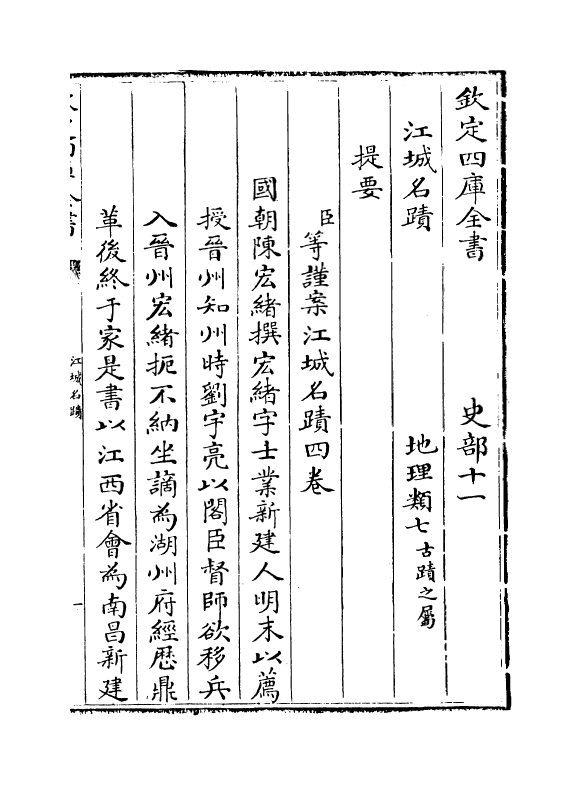 欽定四庫全書　　　史部十一
江城名蹟　　　地理類七古蹟之屬
提要
臣等謹案江城名蹟四卷
國朝陳宏緒撰宏緒字士業新建人明末以薦
授晉州知州時劉宇亮以閣臣督師欲移兵
入晉州宏緒扼不納坐謫為湖州府經歷鼎
革後終于家是書以江西省會為南昌新建
江城名蹟
一